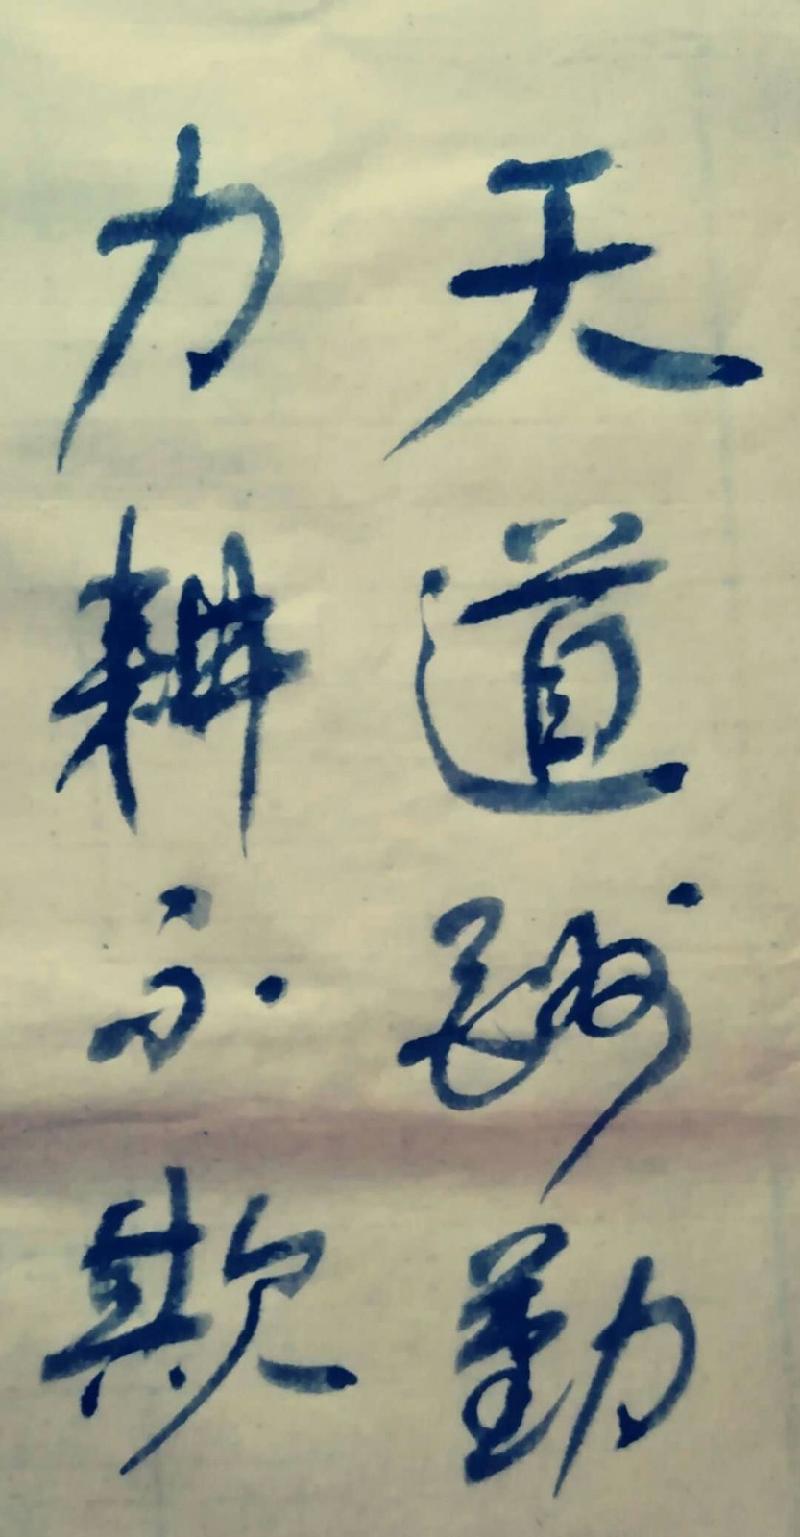 天道酬勤
力耕不欺